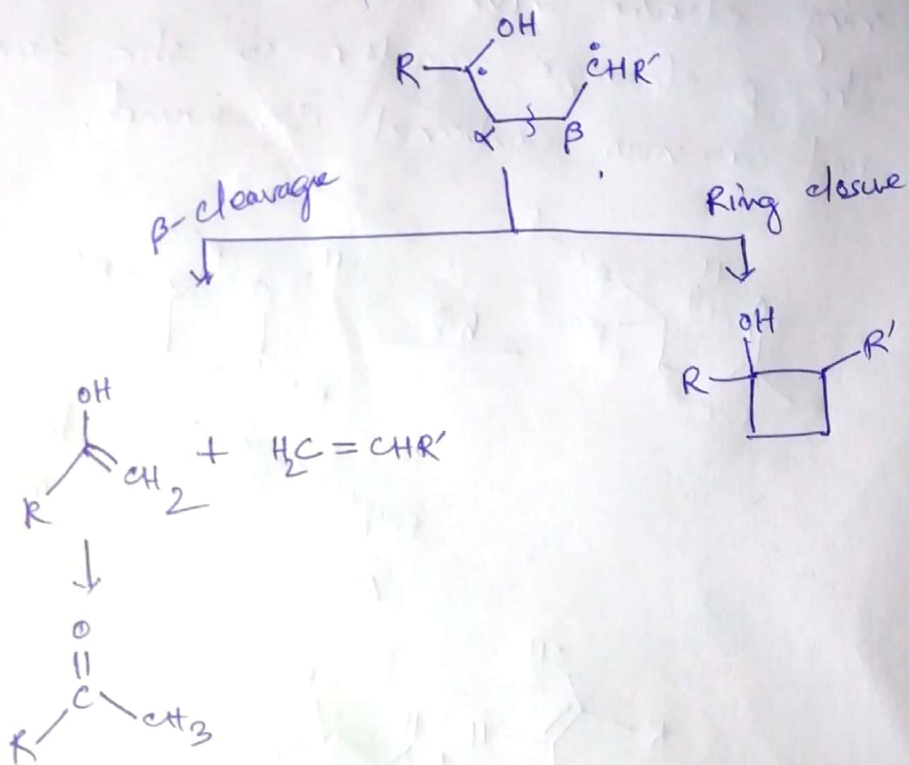 OH
R ĊHR′
α β
β-cleavage Ring closure
OH
R R′
OH
R CH2 + H2C = CHR′
O
R C CH3